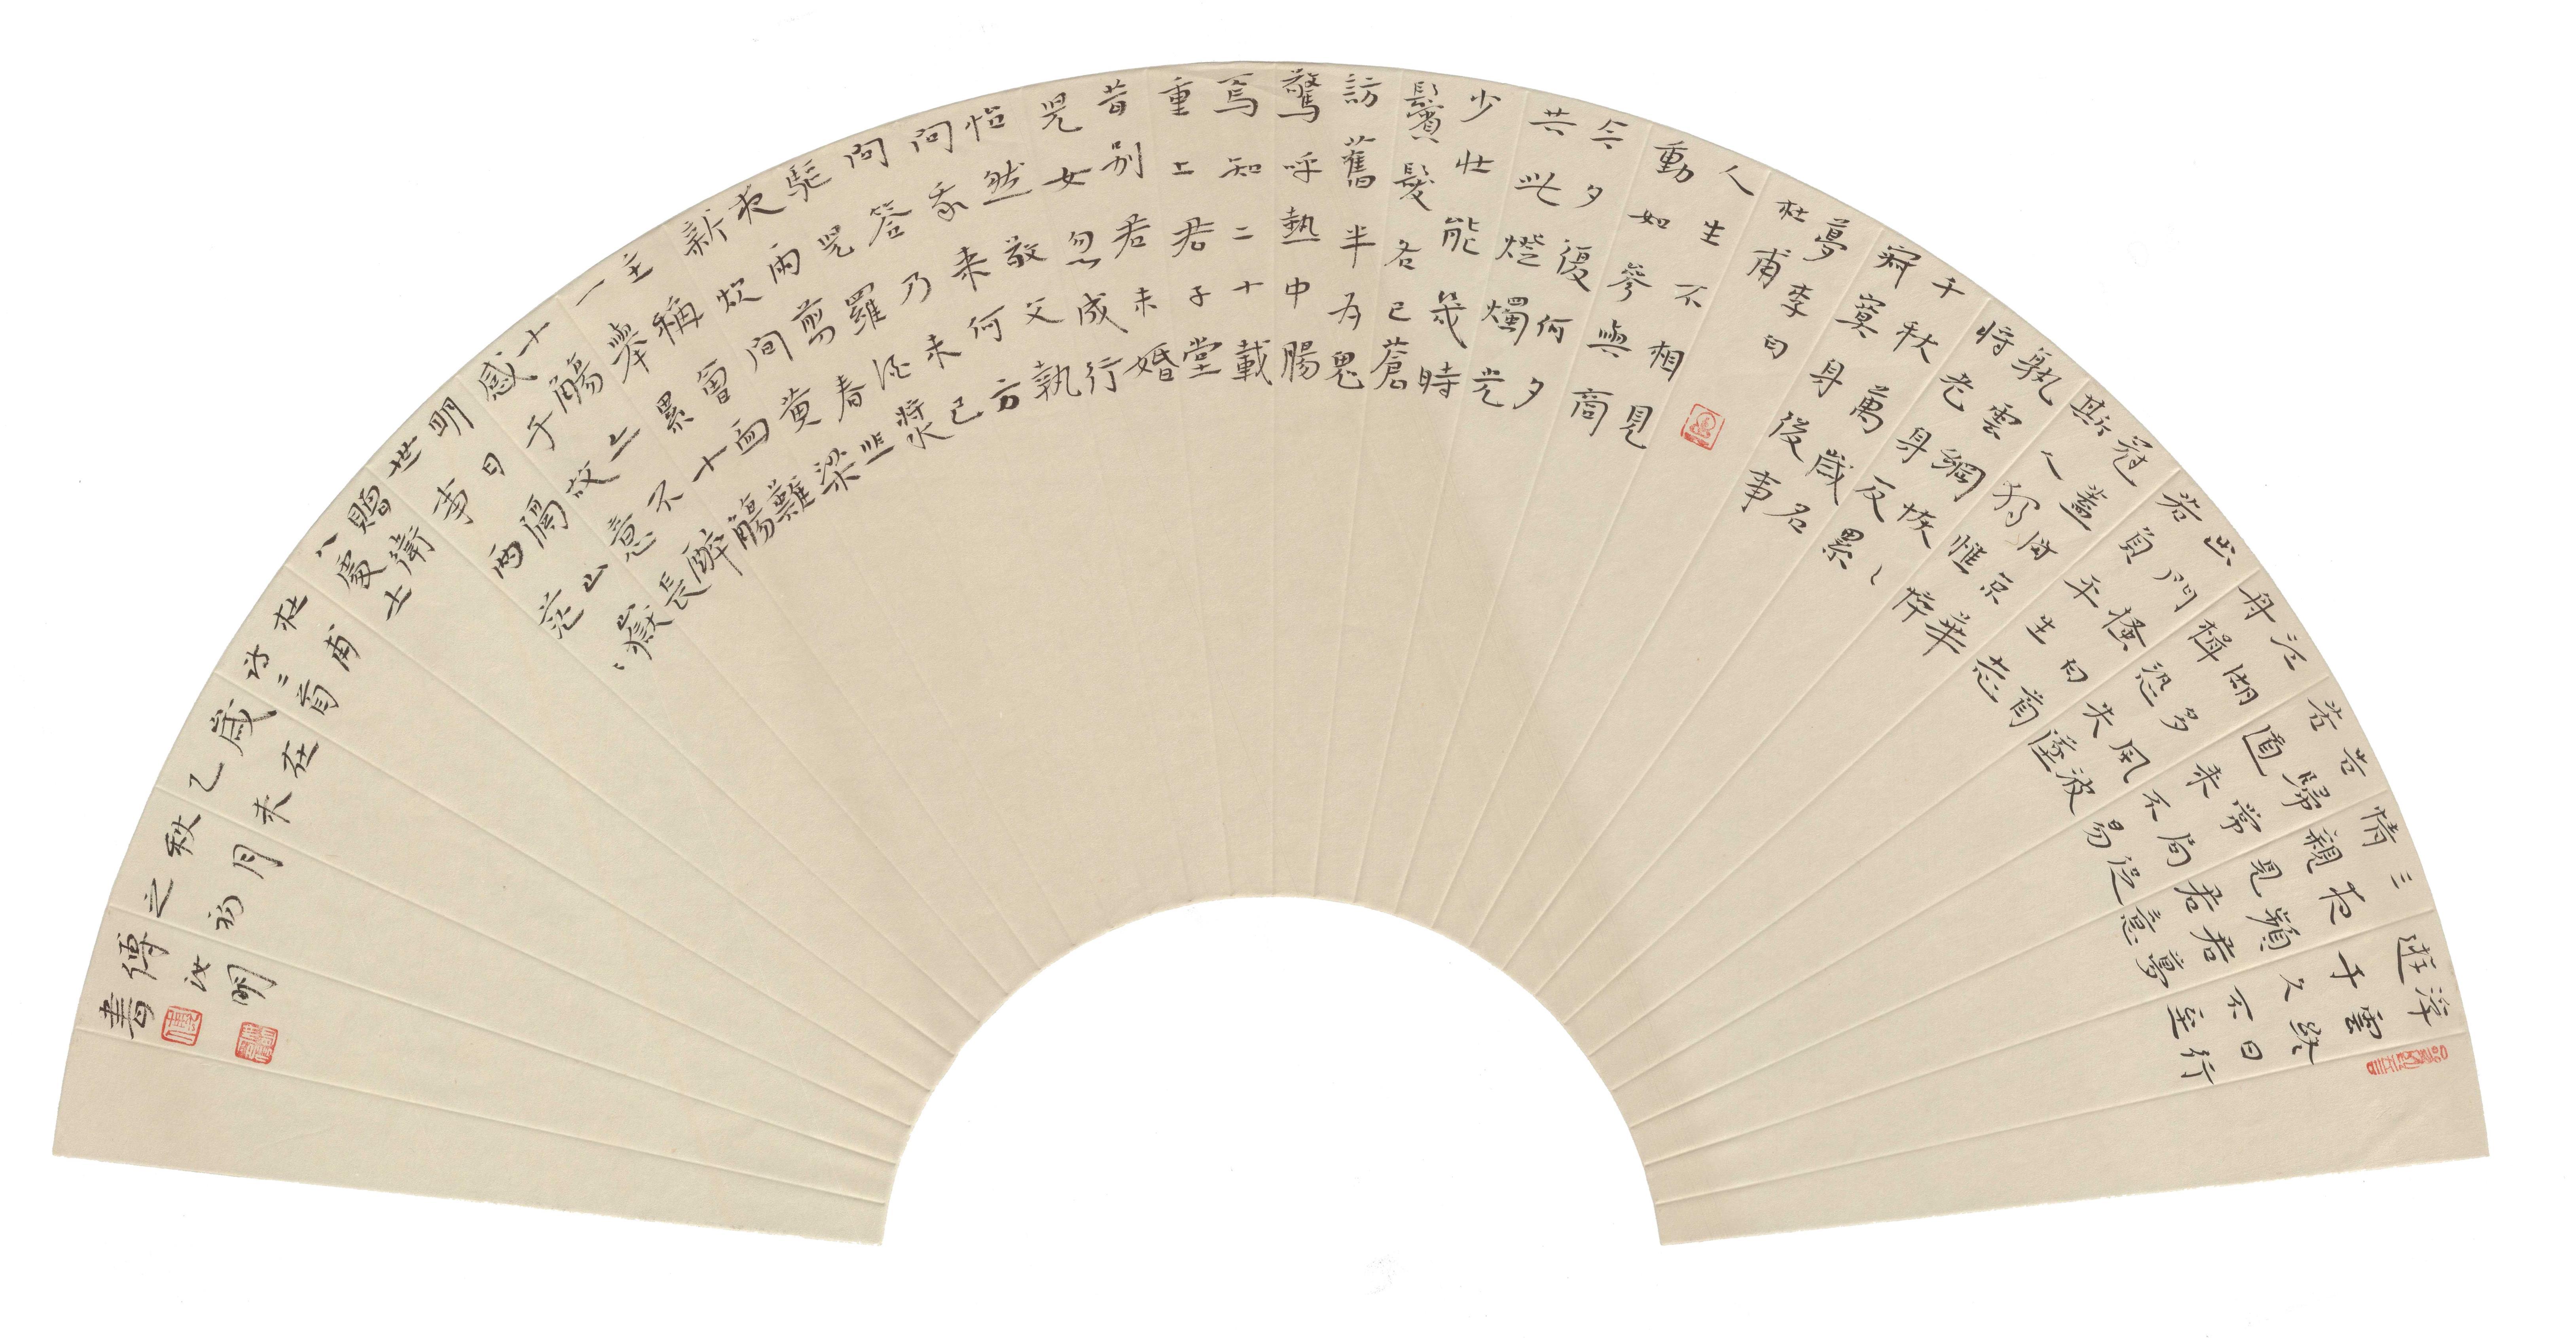 浮雲終日行
遊子久不至
三夜頻君夢
情親見君意
告歸常局促
苦道來不易
江湖多風波
舟楫恐失墜
出門搔白首
若負平生志
冠蓋滿京華
斯人獨憔悴
孰雲網恢〻
將老身反累
千秋萬歲名
寂寞身後事
夢李白
杜甫
人生不相見
動如參與商
今夕復何夕
共此燈燭光
少壯能幾時
鬢髮各已蒼
訪舊半為鬼
驚呼熱中腸
焉知二十載
重上君子堂
昔別君未婚
兒女忽成行
怡然敬父執
問我來何方
問答乃未已
驅兒羅酒漿
夜雨剪春韭
新炊間黃粱
主稱會面難
一舉累十觴
十觴不醉
感子故意長
明日隔山嶽
世事兩茫〻
贈衛
八處士
杜甫
詩二首
歲在
乙未
秋月
之初
傅汝明
書